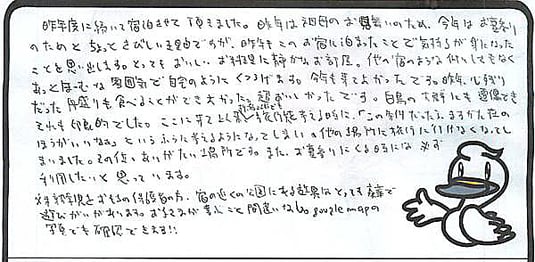 昨年度に続いて宿泊させて頂きました。昨年は祖母のお見舞いのため、今年はお墓参り
のためと ちょっとさびしい理由ですが、昨年もこのお宿に泊まったことで気持ちが楽になった
ことを思い出します。とってもおいしいお料理に静かなお部屋。他の宿のような
あっとほーむな雰囲気で自宅のようにくつろげます。今年も来てよかったです。昨年、心残り
だった舟盛りを食べることができてよかった。超おいしかったです。白鳥の大群にも遭偶でき
それも印象的でした。ここに来てしまうと旅行を考える時に、「この条件だったら、ますがた荘の
ほうがいいなぁ」というふうに考えるようになってしまい、他の場所に旅行に行けなくなってし
まいました。そのくらいありがたい場所です。また、お墓参りにくる時には 必ず
利用したいと思っています。
お子さまの保護者の方、宿の近くの公園にある遊具はとっても豪華で
遊びがいがあります。お子さまが喜ぶこと間違いなし。google mapの
写真でも確認できます!!